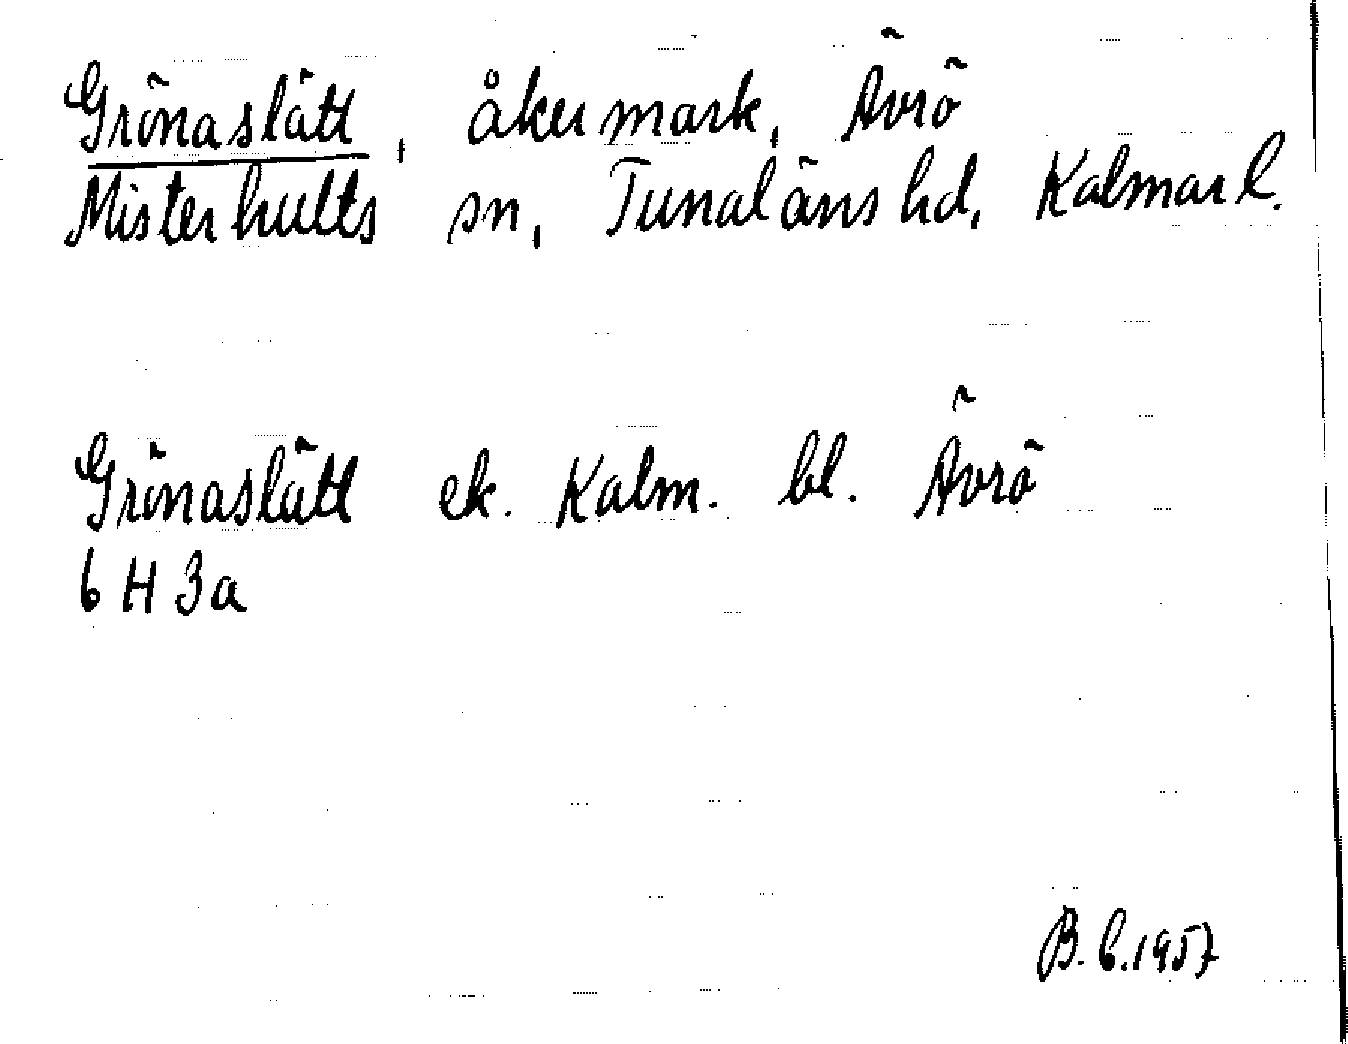 Grönaslätt, åkermark, Ävrö
Misterhults sn, Tunaläns hd, Kalmar l.
Grönaslätt ek. Kalm. bl. Ävrö
6 H 3a
B.C.1957